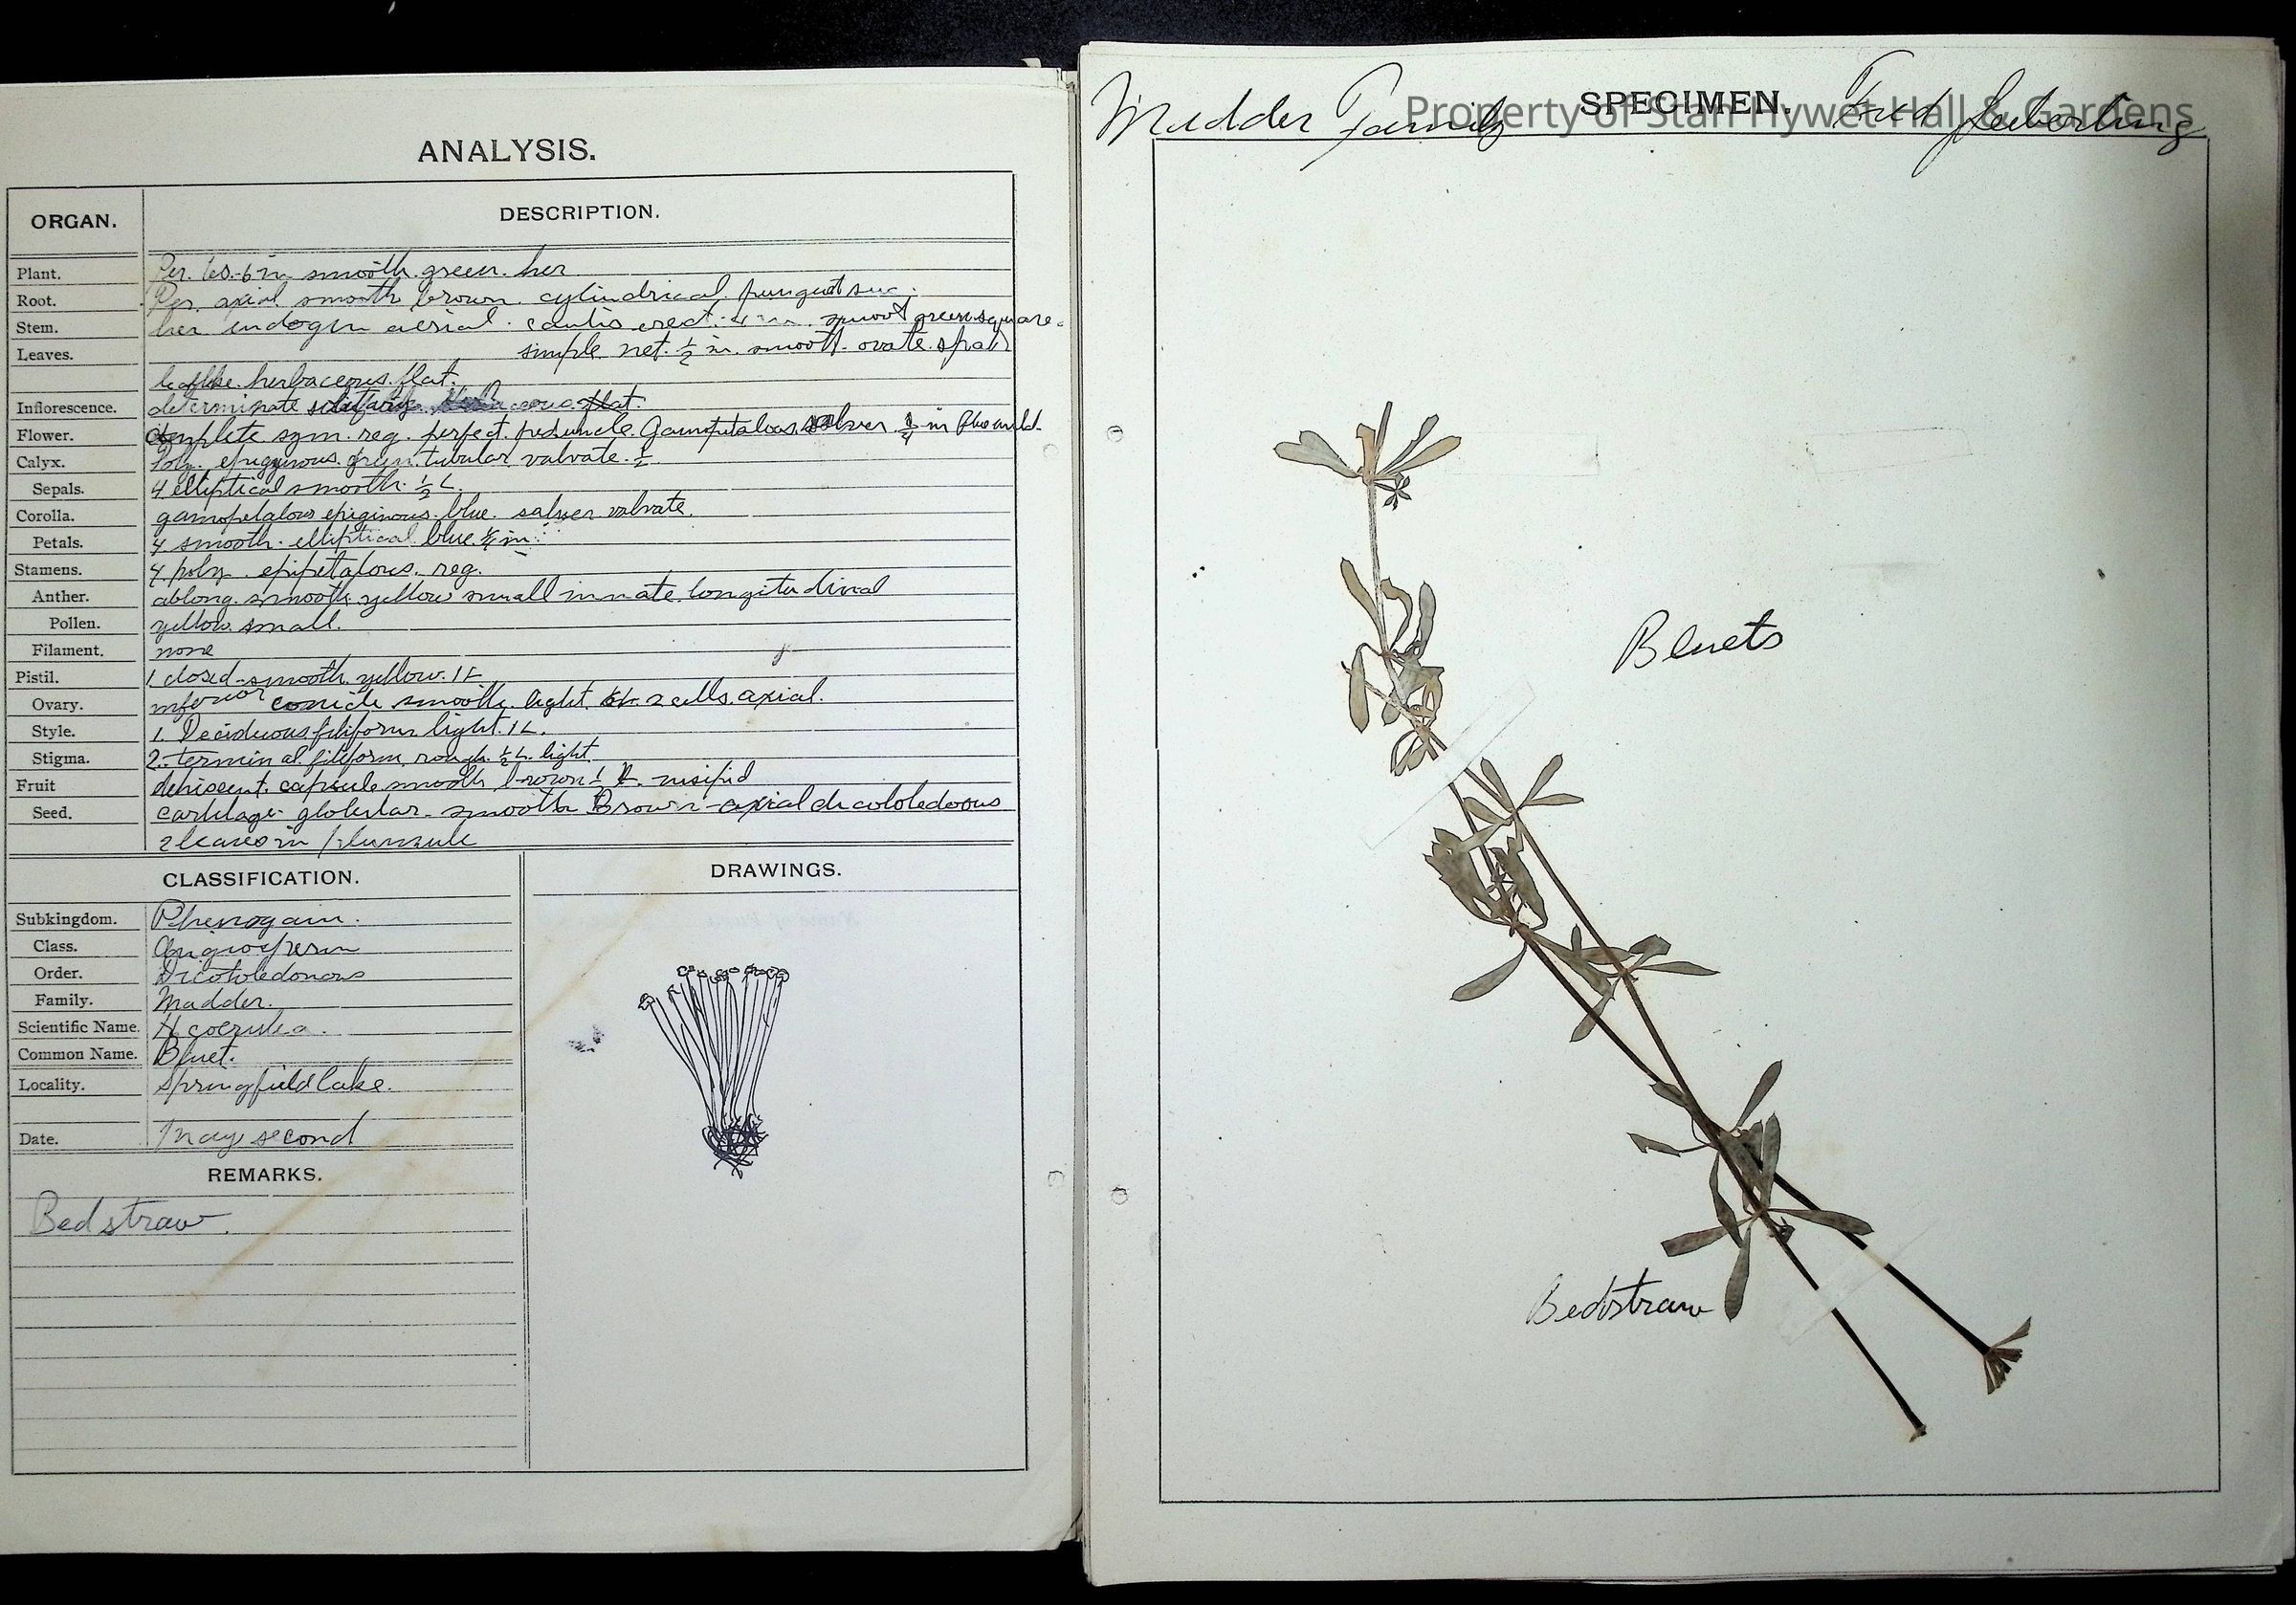 ANALYSIS.
ORGAN. DESCRIPTION.
Plant. Per. 6 in smooth. green. her
Root. Per. axial smooth brown. cylindrical.
Stem. her endogen aerial. erect. green square.
Leaves. simple. net. ½ in. smooth. ovate.
leaflike. herbaceous. flat.
Inflorescence. determinate solitary flat.
Flower. complete sym. reg. perfect. peduncle. Gamopetalous. salver ¼ in
Calyx. Poly. epigynous. green. tubular. valvate. ½
Sepals. 4 elliptical smooth. ½ L.
Corolla. gamopetalous epiginous. blue. salver valvate.
Petals. 4 smooth. elliptical. blue. ¼ in.
Stamens. 4. poly. epipetalous. reg.
Anther. oblong. smooth. yellow small innate. longitudinal
Pollen. yellow. small.
Filament. none
Pistil. 1 closed - smooth. yellow. 1L
Ovary. inferior conicle smooth. light. 2 cells. axial.
Style. 1. Deciduous filiform light. 1L.
Stigma. 2. terminal filiform. rough. ½ L. light
Fruit dehiscent. capsule smooth brown
Seed. cartilage. globular. smooth Brown - axial dicotoledoous
2 leaves in plumule
CLASSIFICATION. DRAWINGS.
Subkingdom. Phenogam.
Class. Angiosperm
Order. Dicotoledonous
Family. Madder.
Scientific Name. H coerulea.
Common Name. Bluet.
Locality. Springfield Lake.
Date. May second
REMARKS.
Bedstraw.
Madder Family SPECIMEN. Fred Seiberling
Property of Stan Hywet Hall & Gardens
Bluets
Bedstraw